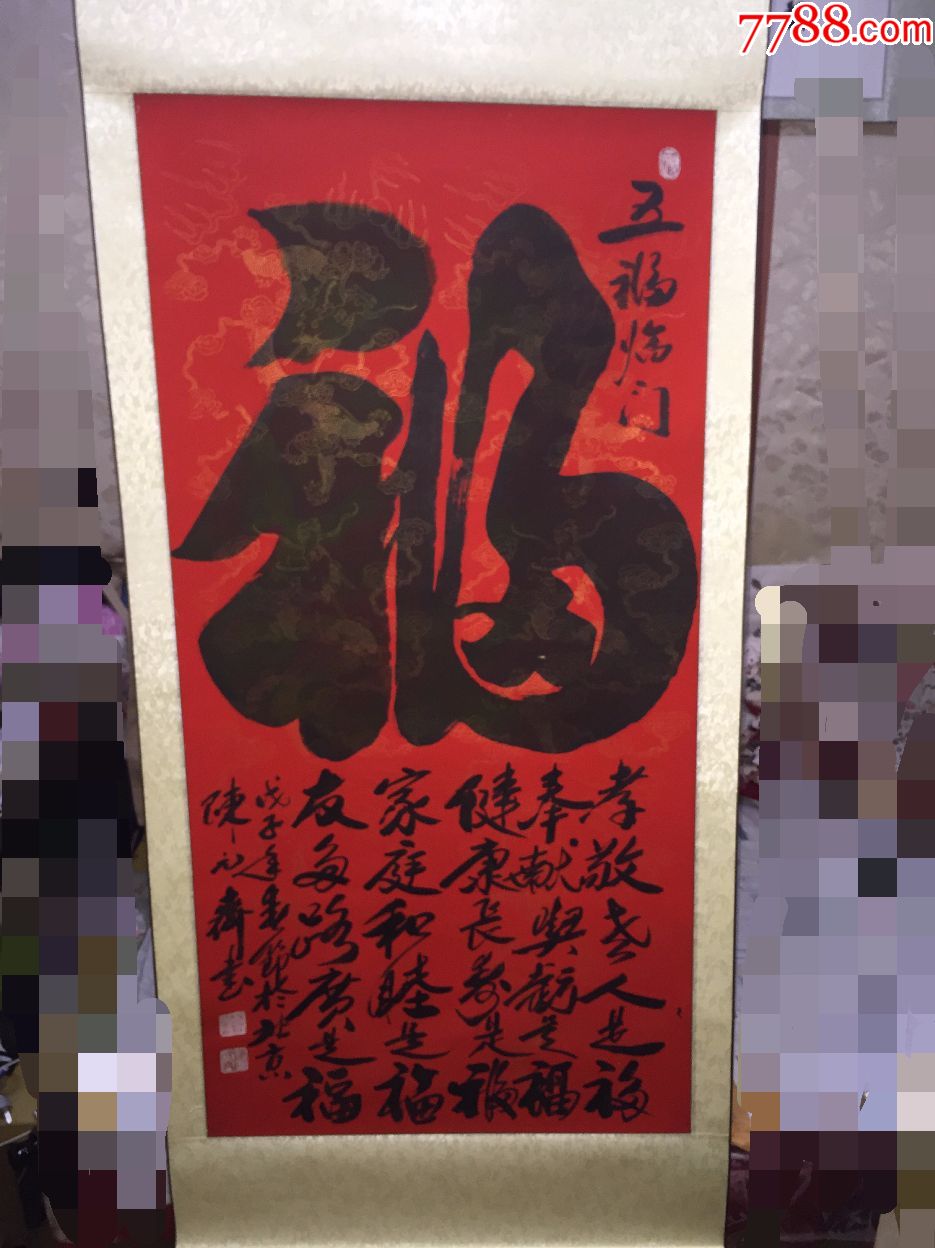 7788.com
福
五福临门
孝敬老人是福
奉献与颧是福
健康长寿是福
家庭和睦是福
友多路广是福
戊子年春节于北京
陈元齐书